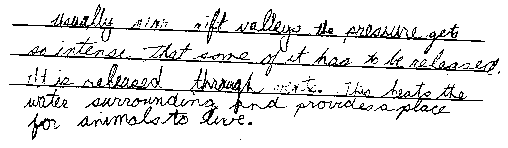 Usually near rift valleys the pressure gets
so intense. That some of it has to be released.
It is released through vents. This heats the
water surrounding and provides a place
for animals to live.